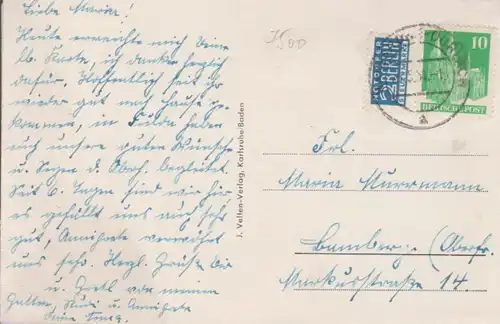 Liebe Maria!
Heute erreichte mich Deine
lb. Karte, ich danke herzlich
dafür. Hoffentlich seit ihr
wieder gut nach Hause ge-
kommen, in Fulda haben
euch unsere guten Wünsche
u. Segen d. begleitet.
Seit 6 Tagen sind wir hier
es gefällt uns auch sehr
gut, Annigrete verwöhnt
uns sehr. Herzl. Grüße Dir
u. Gretl von meinem
Gatten, Rudi u. Annigrete
Deine
J. Velten-Verlag, Karlsruhe/Baden
NOTOPFER
2 BERLIN
STEUERMARKE
10
DEUTSCHE POST
a
Frl.
Maria Murrmann
Bamberg (Oberfr.
Markusstraße 14.